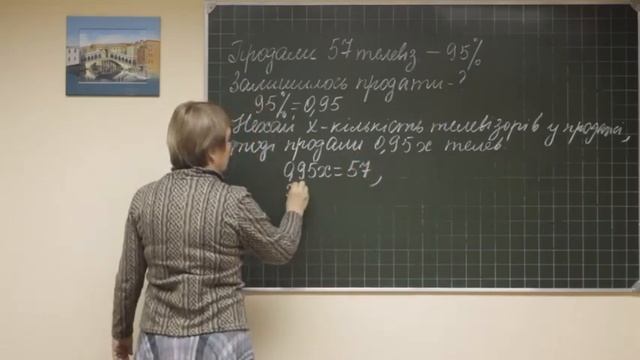 Продали 57 телевіз – 95%
Залишилось продати - ?
95% = 0,95
Нехай x - кількість телевізорів у продажі,
тоді продали 0,95x телев.
0,95x = 57,